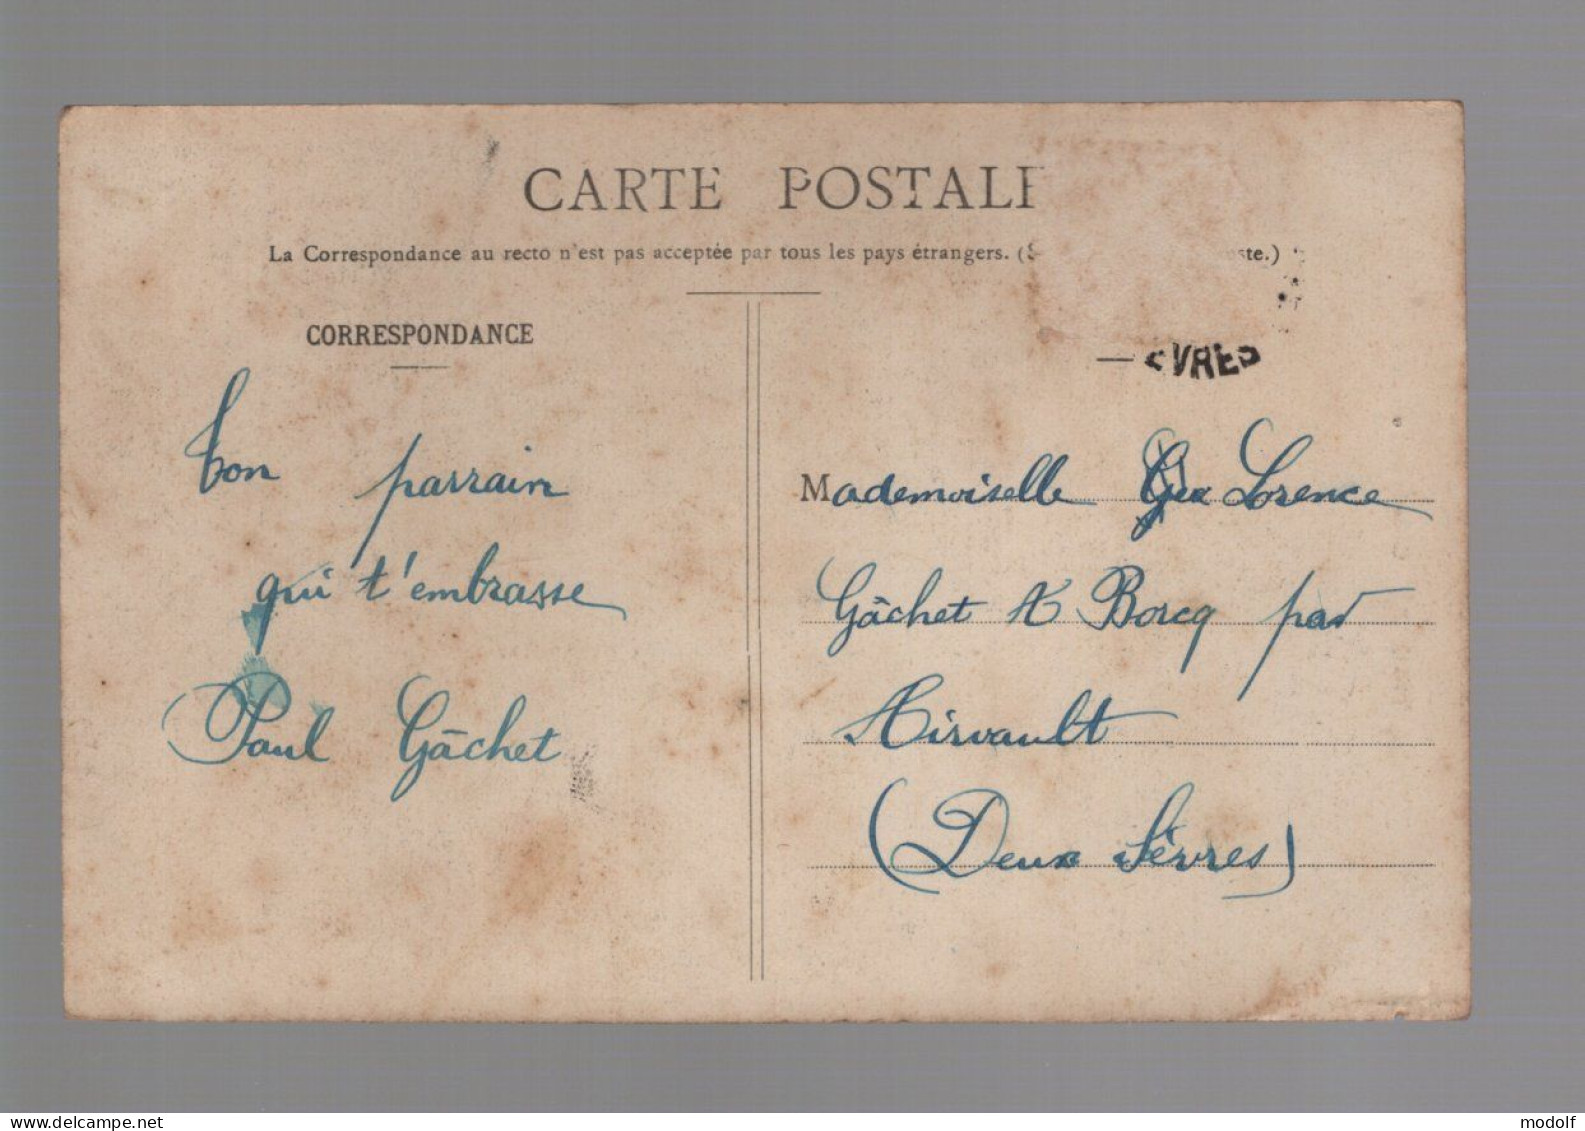 CARTE POSTALE
La Correspondance au recto n'est pas acceptée par tous les pays étrangers. (S ste.)
CORRESPONDANCE
EVRES
ton parrain
qui t'embrasse
Paul Gâchet
Mademoiselle Lorence
Gâchet A Borcq par
Airvault
(Deux Sèvres)
www.delcampe.net
modolf